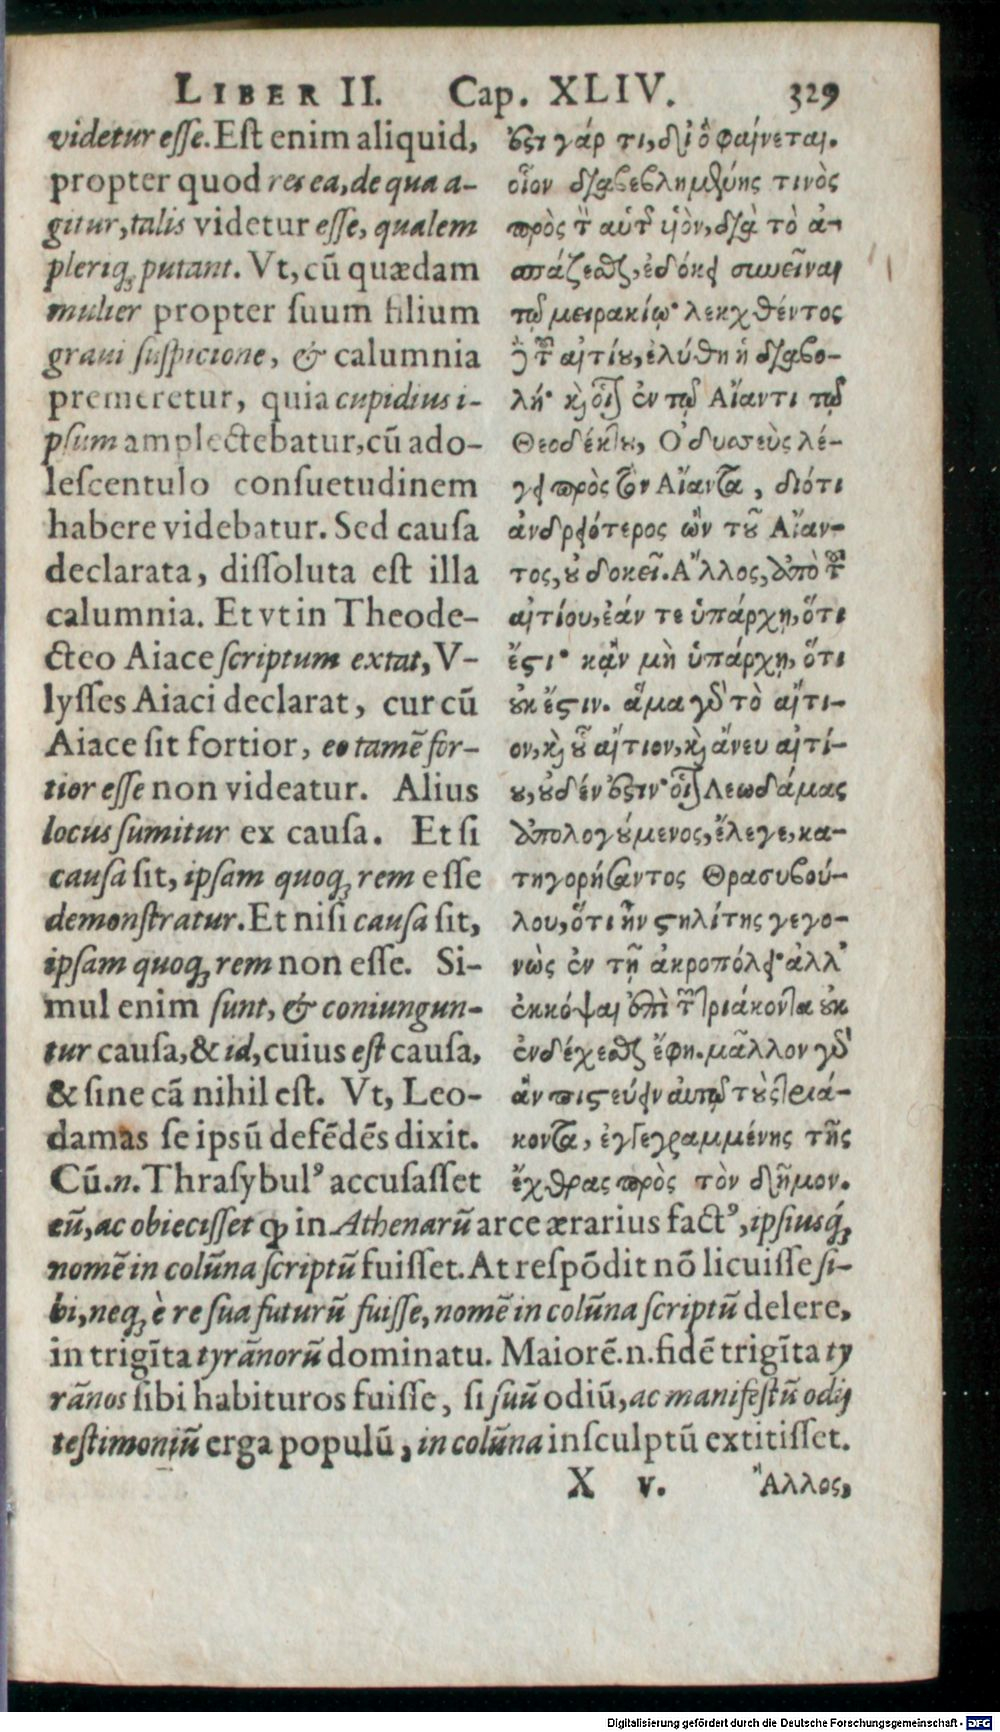 LIBER II. Cap. XLIV. 329
videtur esse. Est enim aliquid,
propter quod res ea, de qua a-
gitur, talis videtur esse, qualem
pleriq; putant. Vt, cū quædam
mulier propter suum filium
graui suspicione, & calumnia
premeretur, quia cupidius i-
psum amplectebatur, cū ado-
lescentulo consuetudinem
habere videbatur. Sed causa
declarata, dissoluta est illa
calumnia. Et vt in Theode-
cteo Aiace scriptum extat, V-
lysses Aiaci declarat, cur cū
Aiace sit fortior, eo tamē for-
tior esse non videatur. Alius
locus sumitur ex causa. Et si
causa sit, ipsam quoq; rem esse
demonstratur. Et nisi causa sit,
ipsam quoq; rem non esse. Si-
mul enim sunt, & coniungun-
tur causa, & id, cuius est causa,
& sine cā nihil est. Vt, Leo-
damas se ipsū defēdēs dixit.
Cū.n. Thrasybulꝰ accusasset
ϛι γάρ τι, δι' ὃ φαίνεται.
οἷον διαβεβλημένης τινὸς
πρὸς τ̃ αὑτ͂ υἱὸν, διὰ τὸ ἀ-
σπάζεσθαι, ἐδόκει συνεῖναι
τῷ μειρακίῳ· λεκχθέντος
ἢ τ͂ αἰτίου, ἐλύθη ἡ διαβο-
λή· κ οἷον ἐν τῷ Αἴαντι τῷ
Θεοδέκτου, Ὀδυσσεὺς λέ-
γει πρὸς τὸν Αἴαντα, διότι
ἀνδρειότερος ὢν τοῦ Αἴαν-
τος, οὐ δοκεῖ. Ἄλλος, ἀπὸ τ͂
αἰτίου, ἐάν τε ὑπάρχῃ, ὅτι
ἔϛι· κἂν μὴ ὑπάρχῃ, ὅτι
οὐκ ἔϛιν. ἅμα γδ τὸ αἴτι-
ον, κ οὗ αἴτιον, κ ἄνευ αἰτί-
ου, οὐδέν ἐϛιν· οἷον Λεωδάμας
ἀπολογούμενος, ἔλεγε, κα-
τηγορήσαντος Θρασυβού-
λου, ὅτι ἦν ϛηλίτης γεγο-
νὼς ἐν τῇ ἀκροπόλει· ἀλλ'
ἐκκόψαι ἐπὶ τ͂ τριάκοντα οὐκ
ἐνδέχεσθαι ἔφη. μᾶλλον γδ
ἂν πιϛεύειν αὐτῷ τοὺς τριά-
κοντα, ἐγγεγραμμένης τῆς
ἔχθρας πρὸς τὸν δῆμον.
eū, ac obiecisset ꝙ in Athenarū arce ærarius factꝰ, ipsiusq́;
nomē in colūna scriptū fuisset. At respōdit nō licuisse si-
bi, neq; è re sua futurū fuisse, nomē in colūna scriptū delere,
in trigīta tyrānorū dominatu. Maiorē.n. fidē trigīta ty
rānos sibi habituros fuisse, si suū odiū, ac manifestū odij
testimoniū erga populū, in colūna insculptū extitisset.
X v. Ἄλλος,
Digitalisierung gefördert durch die Deutsche Forschungsgemeinschaft - DFG